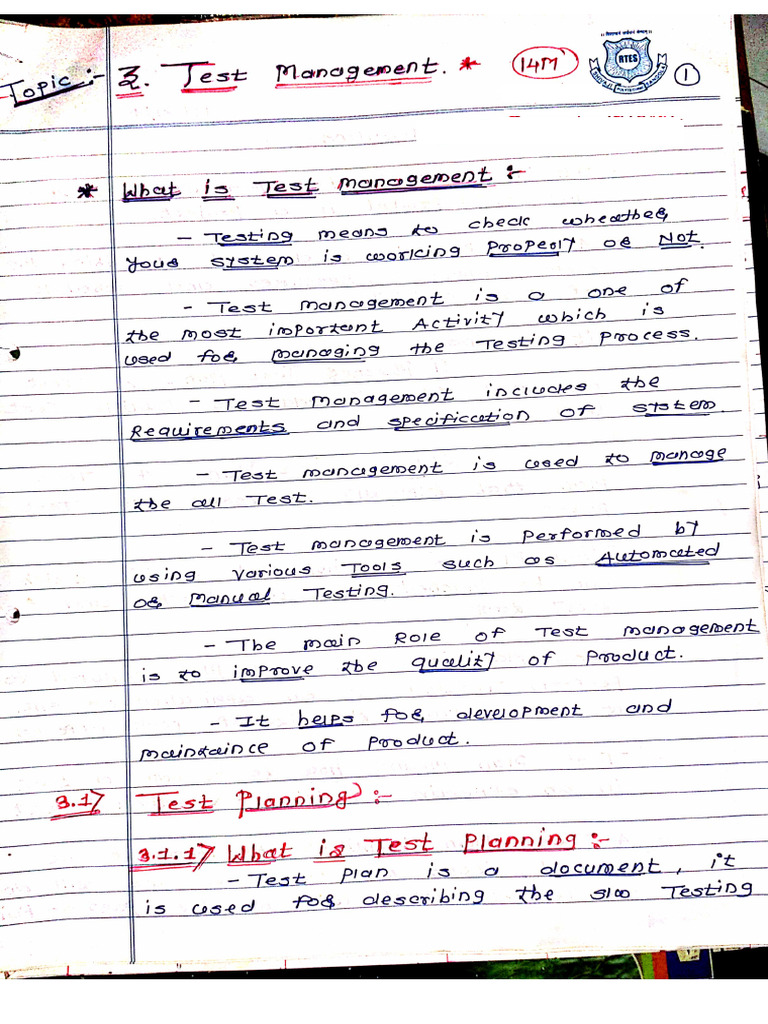 Topic :- 3. Test Management. * 14M 1
RTES
* What is Test Management :-
- Testing means to check wheather
your system is working Properly or Not.
- Test management is a one of
the most important Activity which is
used for managing the Testing Process.
- Test management includes the
Requirements and specification of system.
- Test management is used to manage
the all Test.
- Test management is performed by
using various Tools such as Automated
or Manual Testing.
- The main Role of Test management
is to improve the quality of Product.
- It helps for development and
maintaince of Product.
3.1> Test Planning :-
3.1.1> What is Test Planning :-
- Test plan is a document, it
is used for describing the s/w Testing